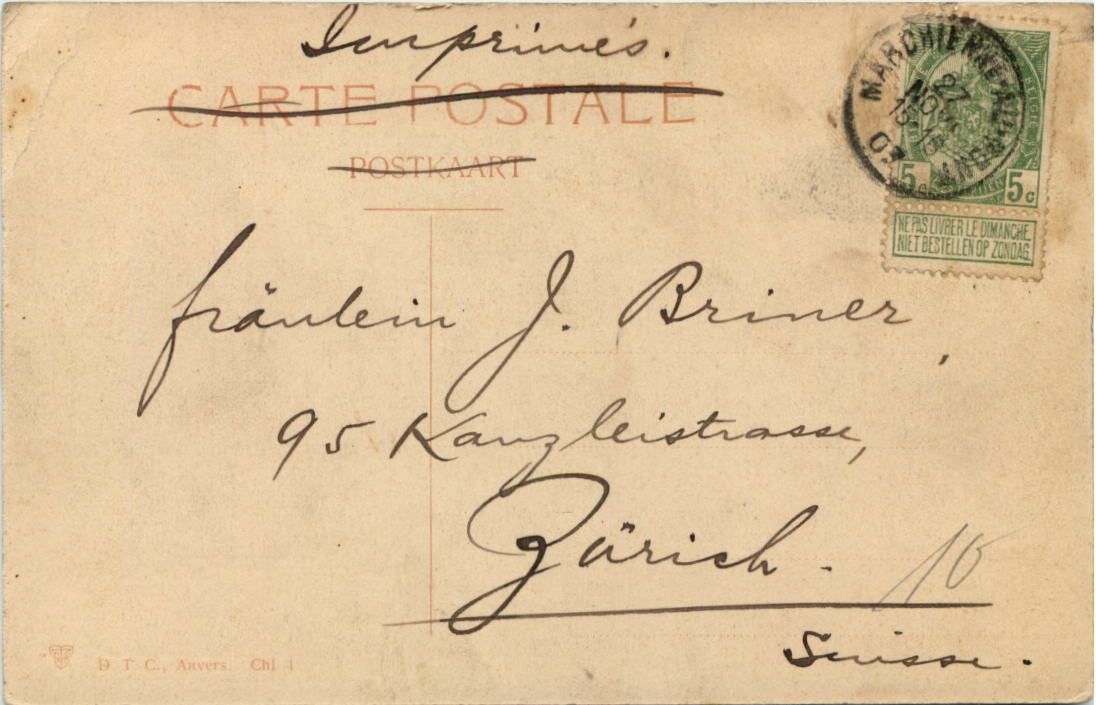 Imprimés.
CARTE POSTALE
POSTKAART
MARCHIENNE-AU-PONT
27
NOV
03
5 5c
NE PAS LIVRER LE DIMANCHE.
NIET BESTELLEN OP ZONDAG.
fräulein J. Briner,
95 Kanzleistrasse,
Zürich.
10
Suisse.
D T C., Anvers. Chl 1